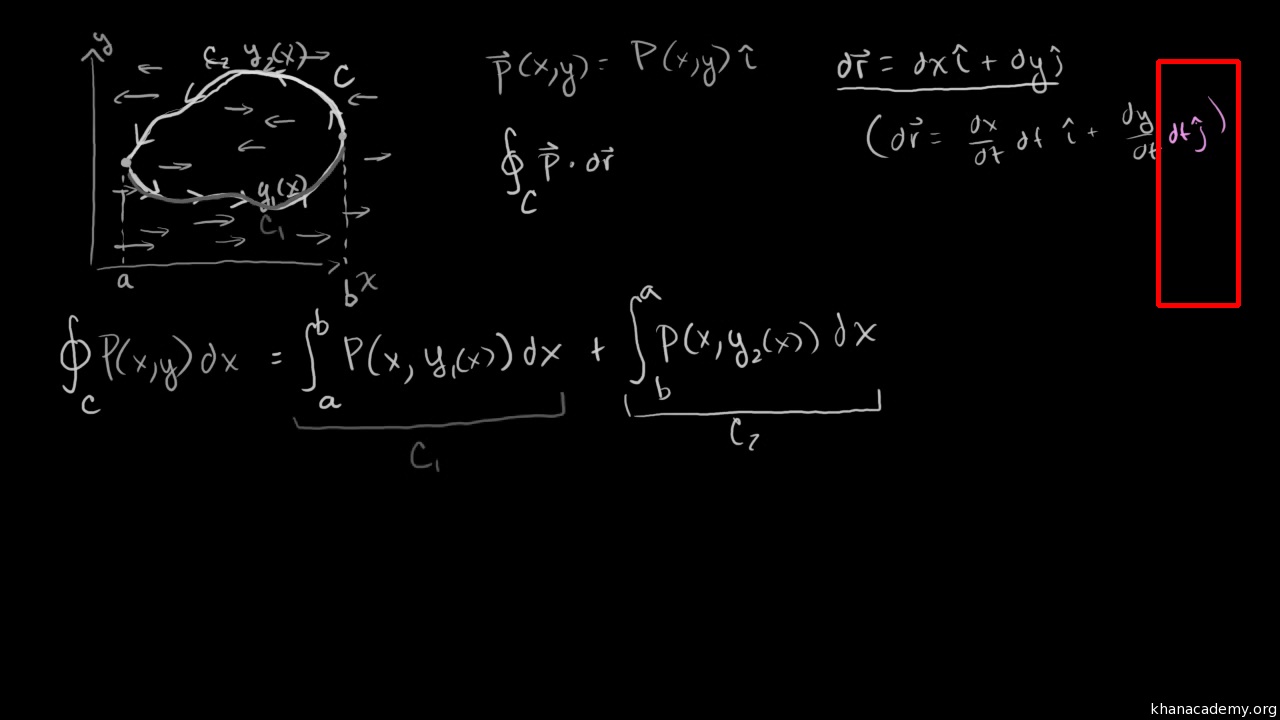 y
C₂ y₂(x)
C
y₁(x)
C₁
a
b x
P⃗(x,y) = P(x,y) î
∮_C P⃗ · dr⃗
dr⃗ = dx î + dy ĵ
(dr⃗ = dx/dt dt î + dy/dt dt ĵ)
∮_C P(x,y) dx = ∫_a^b P(x, y₁(x)) dx + ∫_b^a P(x, y₂(x)) dx
C₁
C₂
khanacademy.org